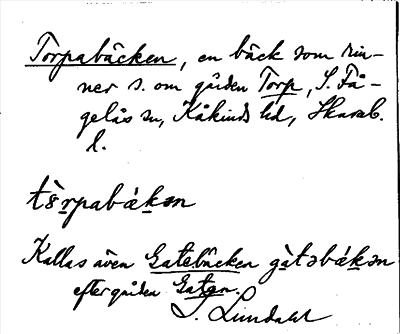 Torpabäcken, en bäck som rin-
ner s. om gården Torp, S. Få-
gelås sn, Kåkinds hd, Skarab.
l.
tɵ̀rpabǽkən
Kallas även Gatebäcken gàtəbǽkən
efter gården Gaten.
S. Lundahl